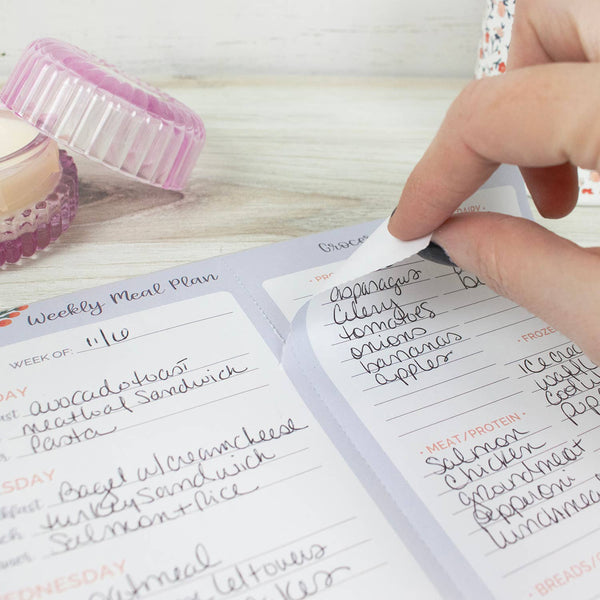 Weekly Meal Plan
WEEK OF: 11/6
DAY
avocado toast
meatball sandwich
Pasta
ESDAY
Bagel w/creamcheese
turkey sandwich
Salmon + Rice
WEDNESDAY
oatmeal
leftovers
Groce
PRO
asparagus
Celery
tomatoes
onions
bananas
apples
MEAT/PROTEIN
Salmon
Chicken
ground meat
pepperoni
lunchmeat
DAIRY
FROZE
icecrea
BREADS/